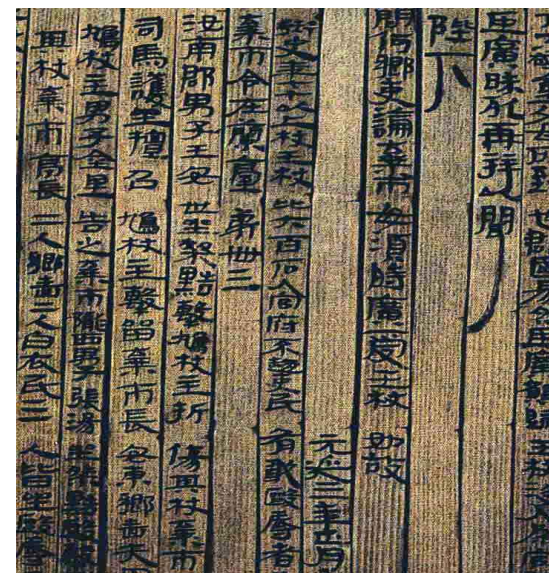 臣廣昧死再拜以聞
陛下
問何鄉吏論棄市毋須時廣受王杖如故
元延三年正月
以上杖王杖比六百石入官府不趨吏民有敢毆辱者
棄市令在蘭臺第卌三
汝南郡男子王安世坐桀黠擊鳩杖主折傷其杖棄市
司馬護坐擅召鳩杖主擊留棄市長安東鄉嗇夫
鳩杖主男子金里告之棄市隴西男子張湯坐桀黠毆擊
其杖棄市亭長二人鄉嗇二人白衣民三人皆坐毆辱